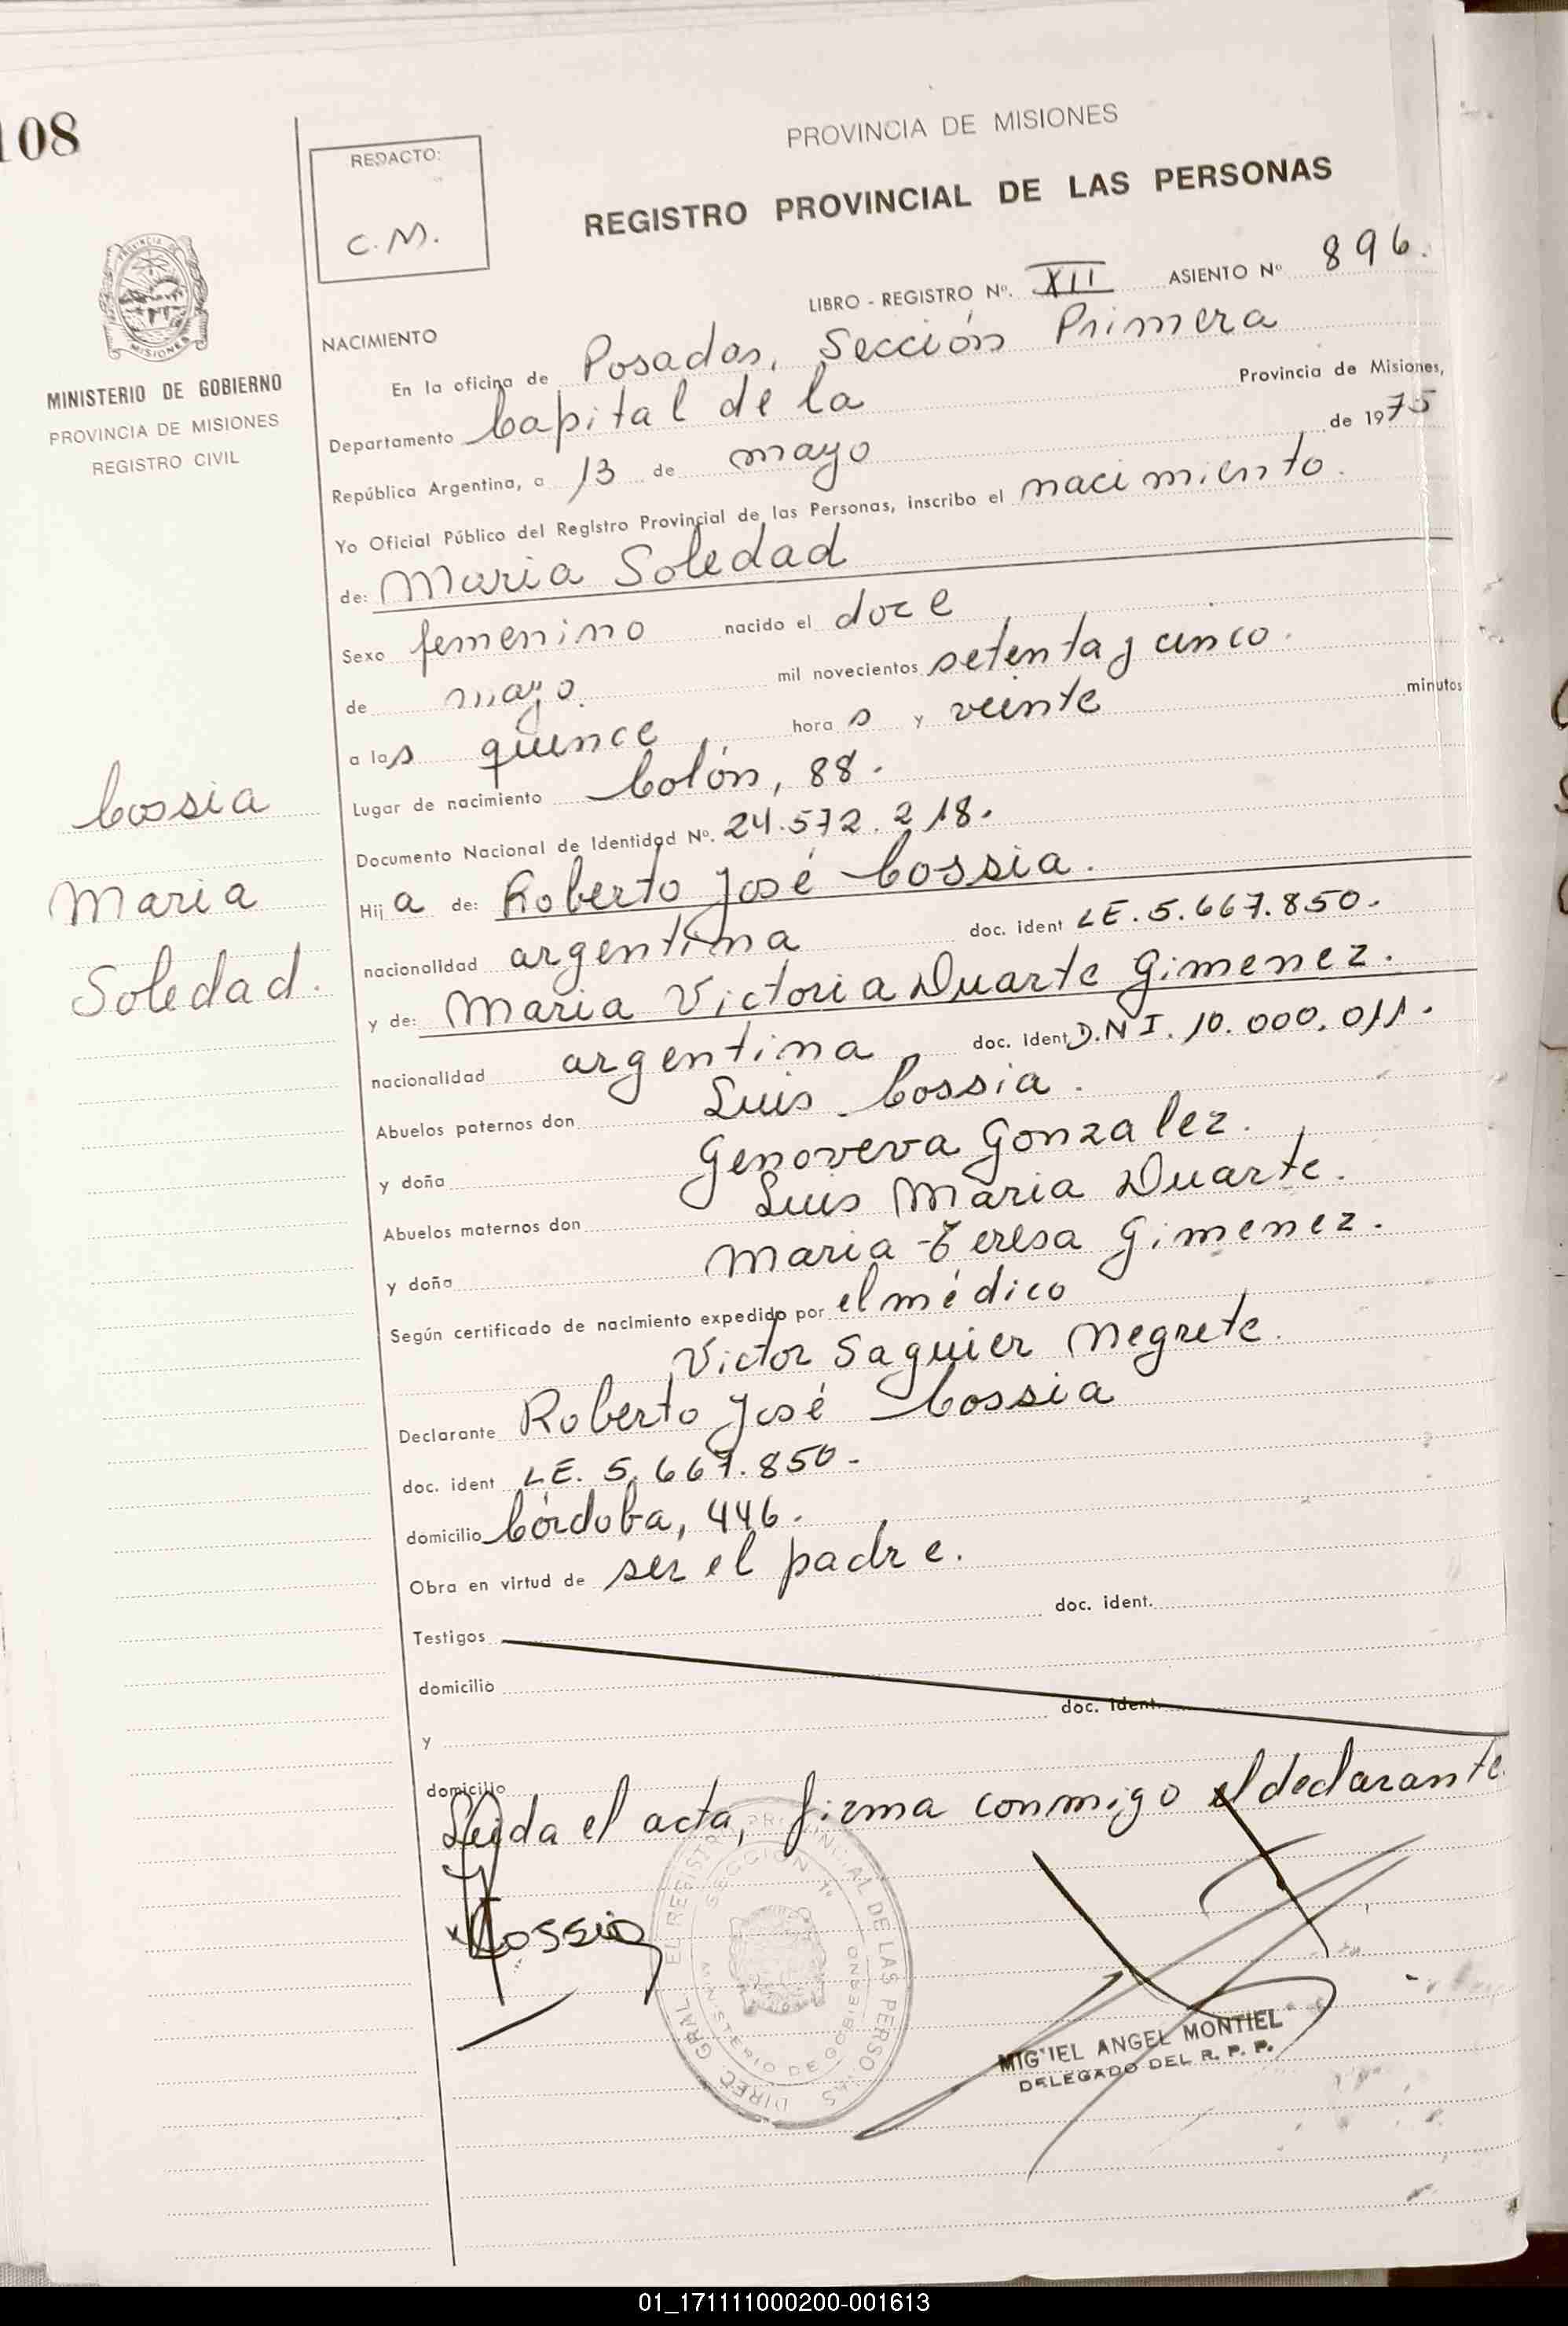 108
REDACTO:
C.M.
PROVINCIA DE MISIONES
REGISTRO PROVINCIAL DE LAS PERSONAS
LIBRO - REGISTRO Nº. XII ASIENTO Nº 896.
MISIONES
MINISTERIO DE GOBIERNO
PROVINCIA DE MISIONES
REGISTRO CIVIL
NACIMIENTO
En la oficina de Posadas, Sección Primera
Departamento Capital de la Provincia de Misiones,
República Argentina, a 13 de mayo de 1975
Yo Oficial Público del Registro Provincial de las Personas, inscribo el nacimiento.
de: Maria Soledad
Sexo femenino nacido el doce
de mayo. mil novecientos setenta y cinco.
a las quince hora s y veinte minutos
Lugar de nacimiento Colón, 88.
Documento Nacional de Identidad Nº. 24.572.218.
Cossia
Maria
Soledad.
Hij a de: Roberto José Cossia.
nacionalidad argentina doc. ident LE. 5.667.850.
y de: Maria Victoria Duarte Gimenez.
nacionalidad argentina doc. ident D.N.I. 10.000.011.
Abuelos paternos don Luis Cossia.
y doña Genoveva Gonzalez.
Abuelos maternos don Luis Maria Duarte.
y doña Maria Teresa Gimenez.
Según certificado de nacimiento expedido por el médico
Victor Saguier Negrete.
Declarante Roberto José Cossia
doc. ident LE. 5.667.850-
domicilio Córdoba, 446.
Obra en virtud de ser el padre.
Testigos doc. ident.
domicilio
y doc. ident.
domicilio
Leida el acta, firma conmigo el declarante.
Cossia
DIREC. GRAL. DEL REGISTRO PROVINCIAL DE LAS PERSONAS
SECCION 1ª
MINISTERIO DE GOBIERNO
MIGUEL ANGEL MONTIEL
DELEGADO DEL R. P. P.
01_171111000200-001613